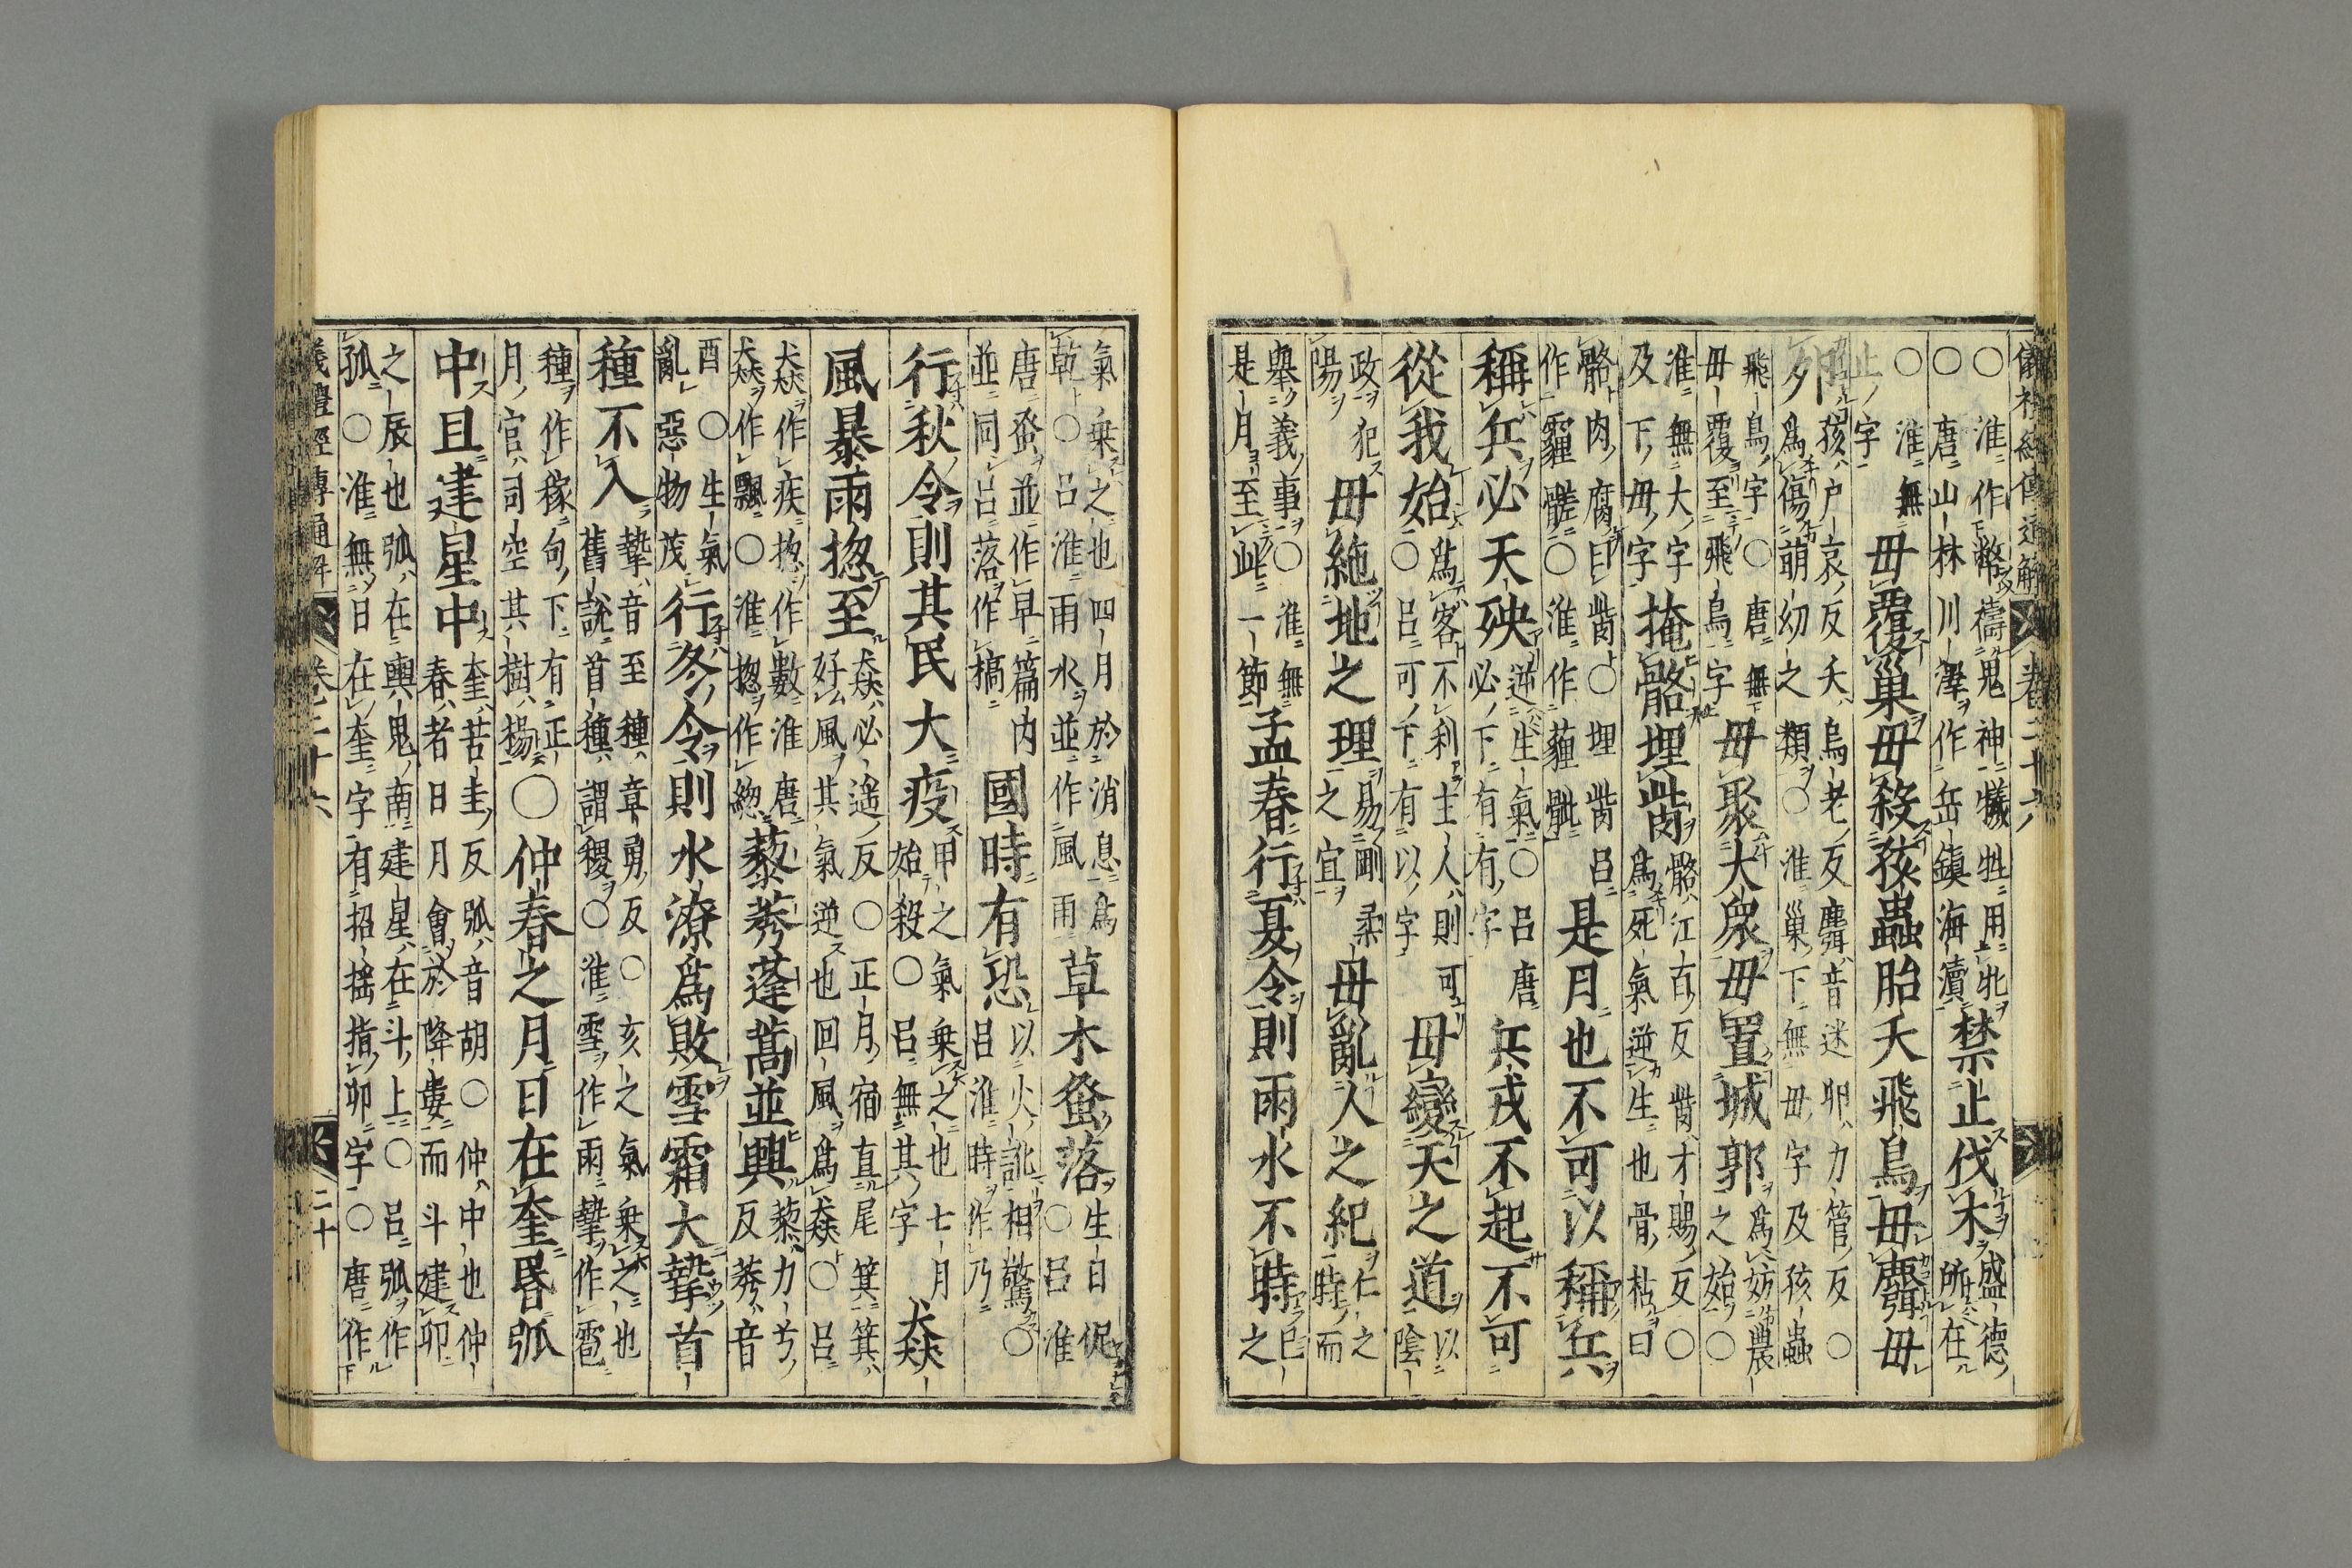 儀禮經傳通解 卷二十六
○淮作幣禱鬼神犧牲用牝
○唐山林川澤作岳鎮海瀆
禁止伐木
盛德
所在
○淮無
止字
毋覆巢毋殺孩蟲胎夭飛鳥毋麛毋
卵
孩戶哀反夭烏老反麛音迷卵力管反○
為傷萌幼之類○淮巢下無毋字及孩蟲
飛鳥字○唐無
毋覆至飛鳥字
毋聚大衆毋置城郭
為妨農
之始○
淮無大字
及下毋字
掩骼埋胔
骼江百反胔才賜反○
為死氣逆生也骨枯曰
骼肉腐曰胔○埋胔呂
作霾髊○淮作薶骴
是月也不可以稱兵
稱兵必天殃
逆生氣○呂唐
必下有有字
兵戎不起不可
從我始
為客不利主人則可
○呂可下有以字
毋變天之道
以
陰
政犯
陽
毋絶地之理
易剛柔
之宜
毋亂人之紀
仁之
時而
舉義事○淮無
是月至此一節
孟春行夏令則雨水不時
巳
之
氣乗之也四月於消息為
乾○呂淮雨水並作風雨
草木蚤落
生日促
○呂淮
唐蚤並作早篇内
並同呂落作槁
國時有恐
以火訛相驚○
呂淮時作乃
行秋令則其民大疫
甲之氣乗之也七月
始殺○呂無其字
猋
風暴雨揔至
猋必遥反○正月宿直尾箕箕
好風其氣逆也回風為猋○呂
猋作疾揔作數淮唐
猋作飄○淮揔作緫
藜莠蓬蒿並興
藜力兮
反莠音
酉○生氣
亂惡物茂
行冬令則水潦為敗雪霜大摯首
種不入
摯音至種章勇反○亥之氣乗之也
舊說首種謂稷○淮雪作雨摯作雹
種作稼句下有正
月官司空其樹楊
○仲春之月日在奎昏弧
中旦建星中
奎苦圭反弧音胡○仲中也仲
春者日月會於降婁而斗建卯
之辰也弧在輿鬼南建星在斗上○呂弧作
狐○淮無日在奎字有招揺指卯字○唐作
儀禮經傳通解 卷二十六 二十